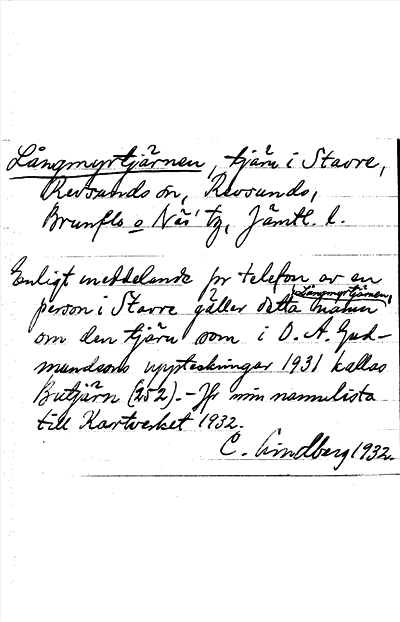 Långmyrtjärnen, tjärn i Stavre,
Revsunds sn, Revsunds,
Brunflo o Näs' tg, Jämtl. l.
Enligt meddelande pr telefon av en
person i Stavre gäller detta namn
Långmyrtjärnen,
om den tjärn som i O. A. Gud-
mundsons uppteckningar 1931 kallas
Butjärn (252). - Jfr min namnlista
till Kartverket 1932.
C. Lindberg 1932.